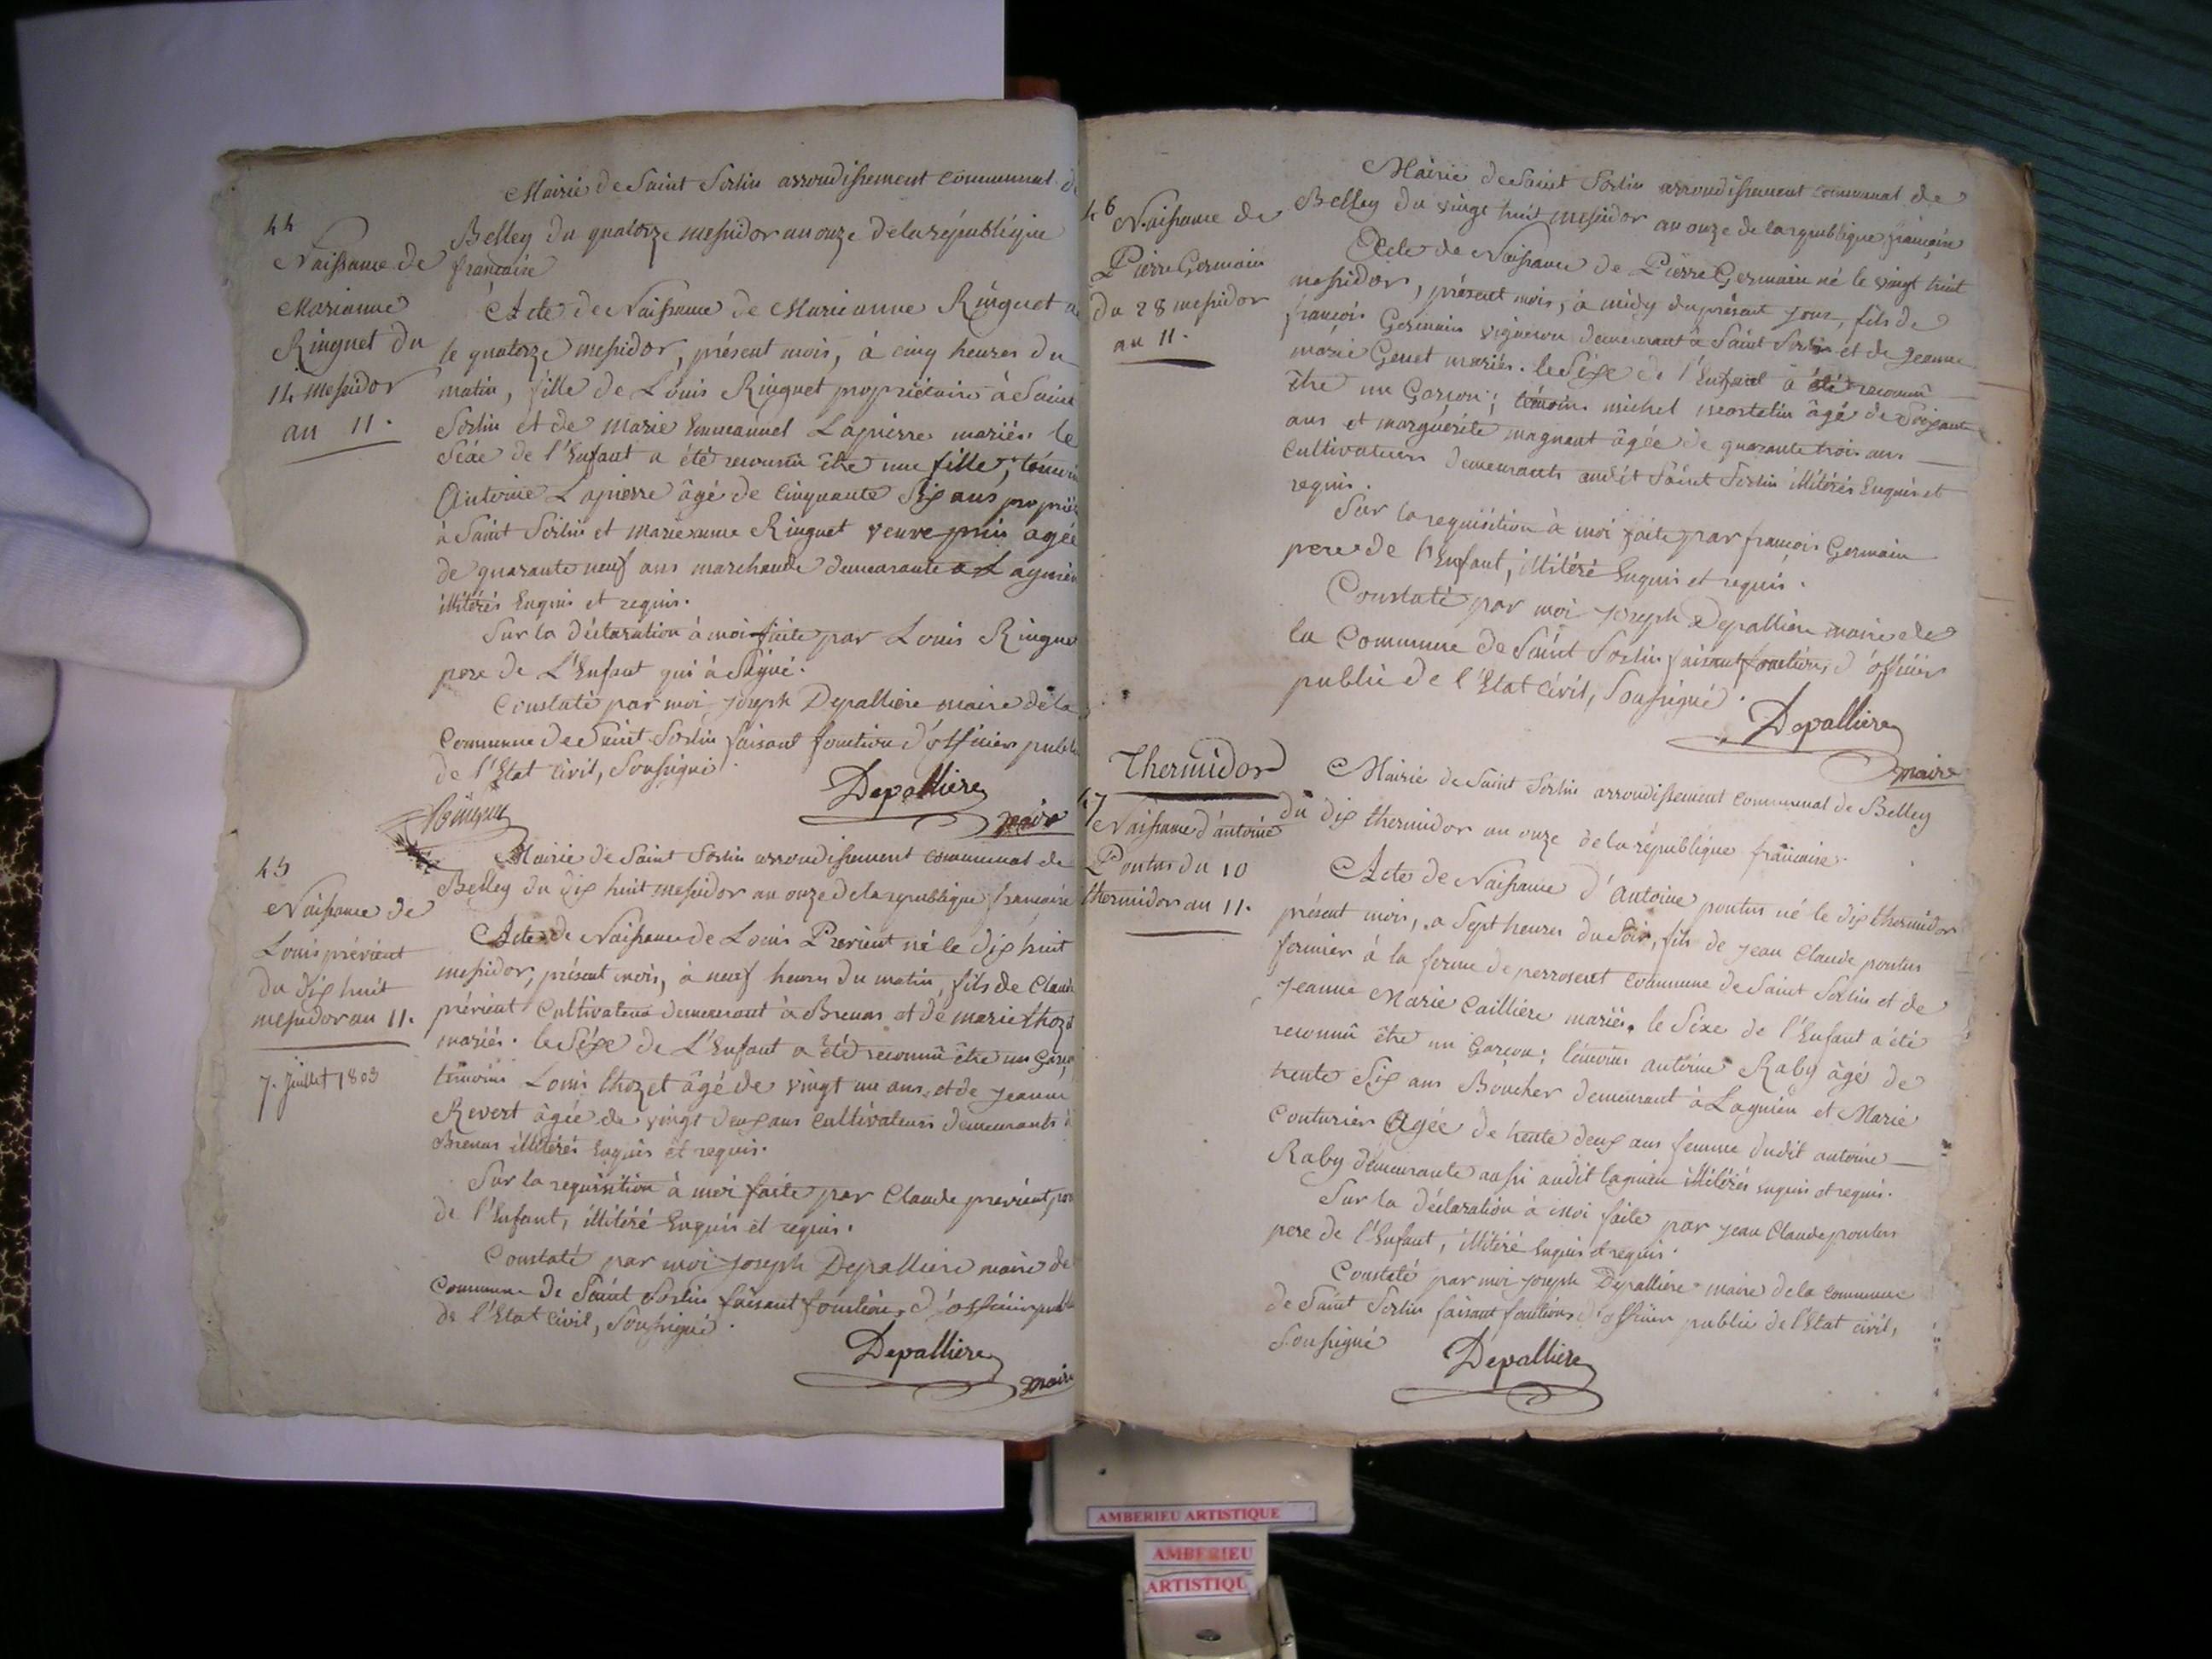 Mairie de Saint Sorlin arrondissement communal de
44
Naissance de
Marianne
Ringuet du
14 messidor
an 11.
Belley du quatorze messidor an onze de la république
française
Acte de Naissance de Marieanne Ringuet
le quatorze messidor, présent mois, à cinq heures du
matin, fille de Louis Ringuet propriétaire à Saint
Sorlin et de Marie Emmanuel Lapierre mariés. le
Séxe de l'Enfant a été reconnû être une fille; témoins
Antoine Lapierre âgé de Cinquante Six ans
à Saint Sorlin et Marieanne Ringuet veuve prin agée
de quarante neuf ans marchande demeurante a Lagnieu
illitérés Enquis et requis.
Sur la déclaration à moi faite par Louis Ringuet
pere de L'Enfant qui à Signé.
Constaté par moi Joseph Depalliere maire de la
Commune de Saint Sorlin faisant fonction d'officier public
de l'Etat Civil, Soussigné.
Depalliere
maire
Ringuet
45
Naissance de
Louis prévient
du dix huit
messidor an 11.
7. Juillet 1803
Mairie de Saint Sorlin arrondissement communal de
Belley du dix huit messidor an onze de la republique française
Acte de Naissance de Louis Prévient né le dix huit
messidor, présent mois, à neuf heures du matin, fils de Claude
prévient Cultivateur demeurant à Brenas et de marie thozet
mariés. le Séxe de L'Enfant a été reconnû être un Garçon
témoins Louis thozet âgé de vingt un ans et de Jeanne
Revert âgée de vingt deux ans Cultivateurs demeurants à
Brenas illitérés Enquis et requis.
Sur la requisition à moi faite par Claude prévient,
de l'Enfant, illitéré Enquis et requis.
Constaté par moi Joseph Depalliere maire de
Commune de Saint Sorlin faisant fonctions d'officier public
de l'Etat Civil, Soussigné.
Depalliere
maire
Mairie de Saint Sorlin arrondissement communal de
46
Naissance de
Pierre Germain
du 28 messidor
an 11.
Belley du vingt huit messidor an onze de la republique française
Acte de Naissance de Pierre Germain né le vingt huit
messidor, présent mois, à midy du présent jour, fils de
françois Germain vigneron demeurant à Saint Sorlin et de Jeanne
marie Genet mariés. le Séxe de l'Enfant à été reconnû
être un Garçon; témoins michel mortelin âgé de Soixante
ans et marguérite magnant âgée de quarante trois ans
Cultivateurs demeurants audit Saint Sorlin illitérés Enquis et
requis.
Sur la requisition à moi faite par françois Germain
pere de l'Enfant, illitéré Enquis et requis.
Constaté par moi Joseph Depalliere maire de
la Commune de Saint Sorlin faisant fonctions d'officier
public de l'Etat Civil, Soussigné.
Depalliere
maire
Thermidor
47
Naissance d'antoine
Pontus du 10
thermidor an 11.
Mairie de Saint Sorlin arrondissement communal de Belley
du dix thermidor an onze de la république française.
Acte de Naissance d'Antoine pontus né le dix thermidor
présent mois, a Sept heures du Soir, fils de Jean Claude pontus
fermier à la ferme de perrosent commune de Saint Sorlin et de
Jeanne Marie Cailliere mariés. le Séxe de l'Enfant a été
reconnû être un Garçon; témoins antoine Raby âgé de
trente Six ans Boucher demeurant à Lagnieu et Marie
Couturier Agée de trente deux ans femme dudit antoine
Raby demeurante aussi audit lagnieu illitérés enquis et requis.
Sur la déclaration à moi faite par Jean Claude pontus
pere de l'Enfant, illitéré Enquis et requis.
Constaté par moi Joseph Depalliere maire de la Commune
de Saint Sorlin faisant fonctions d'officier public de l'Etat Civil,
Soussigné
Depalliere
AMBERIEU ARTISTIQUE
AMBERIEU
ARTISTIQU